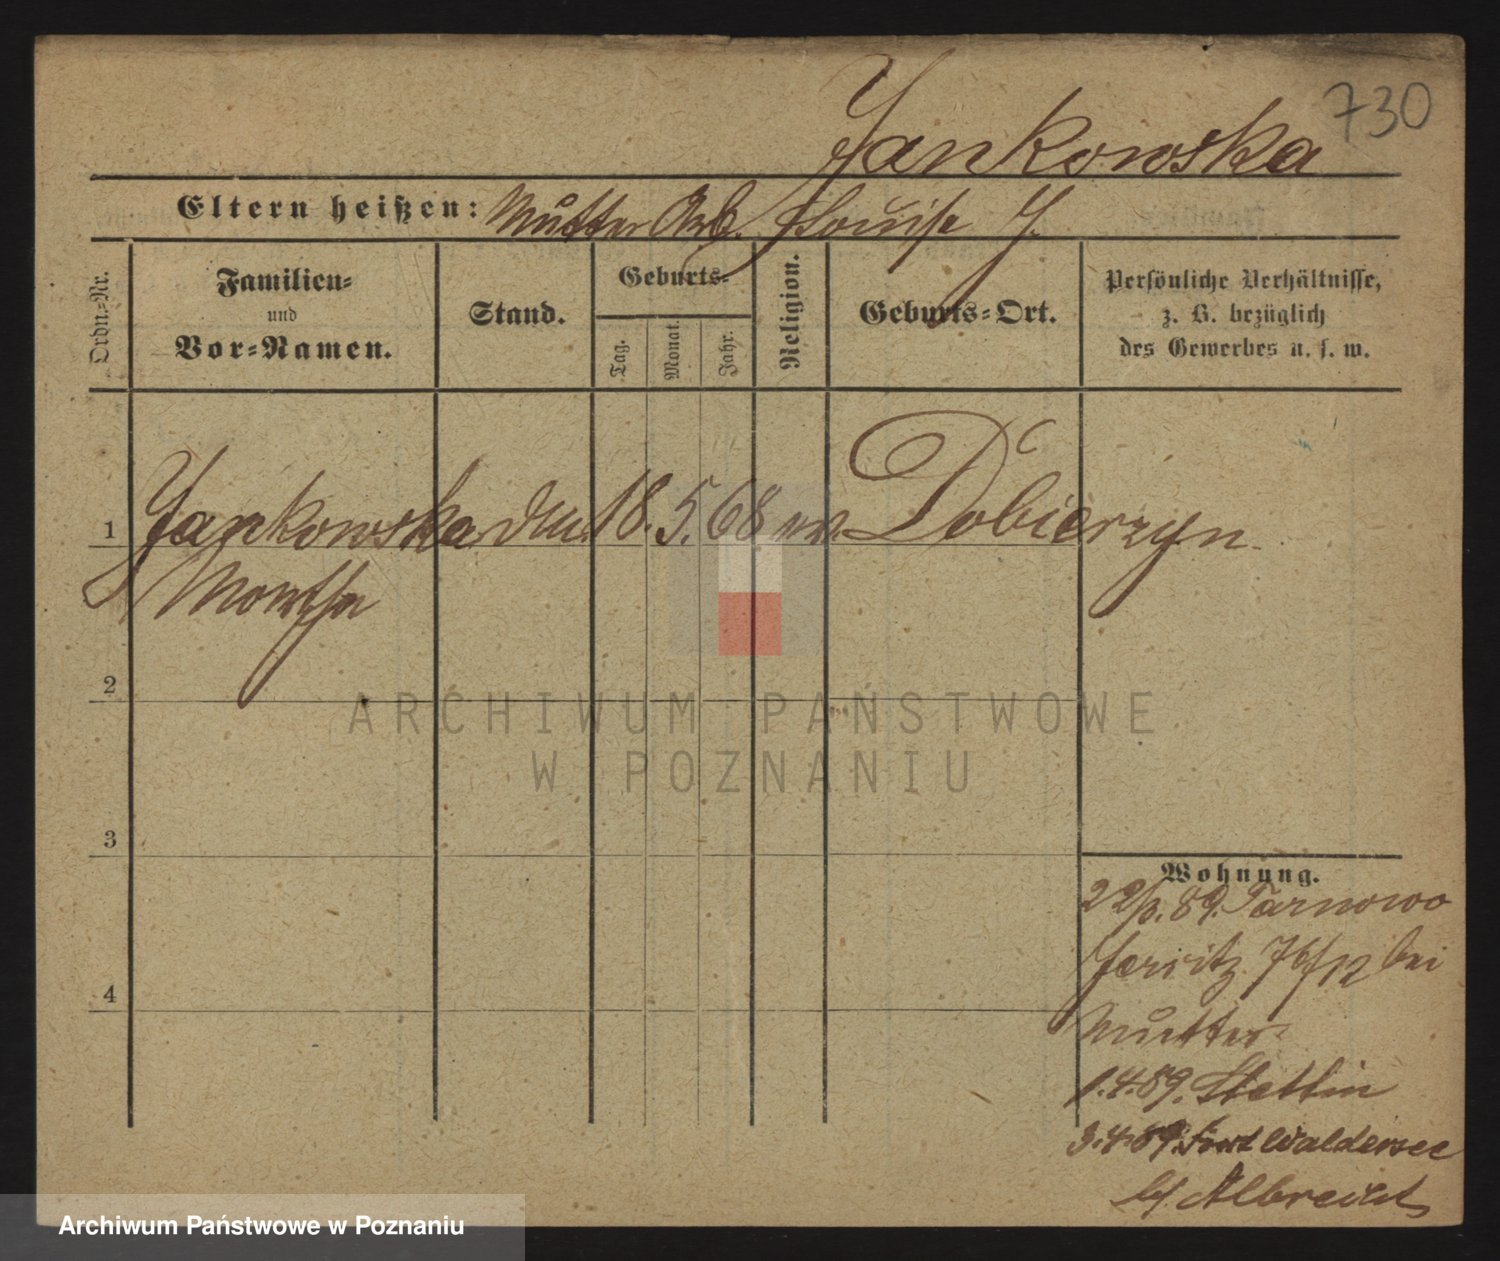 730
Jankowska
Eltern heißen: Mutter Arb. Louise J.
Ordn.-Nr.
Familien-
und
Vor-Namen.
Stand.
Geburts-
Tag.
Monat.
Jahr.
Religion.
Geburts-Ort.
Persönliche Verhältnisse,
z. B. bezüglich
des Gewerbes u. s. w.
1 Jankowska 18. 5. 68 Dobierzyn
Martha
2
3
4
Wohnung.
89. Tarnowo
Jersitz 76/12 bei
Mutter
1.4.89. Stettin
3.4.89. Fort Waldersee
b/ Albrecht
ARCHIWUM PAŃSTWOWE
W POZNANIU
Archiwum Państwowe w Poznaniu